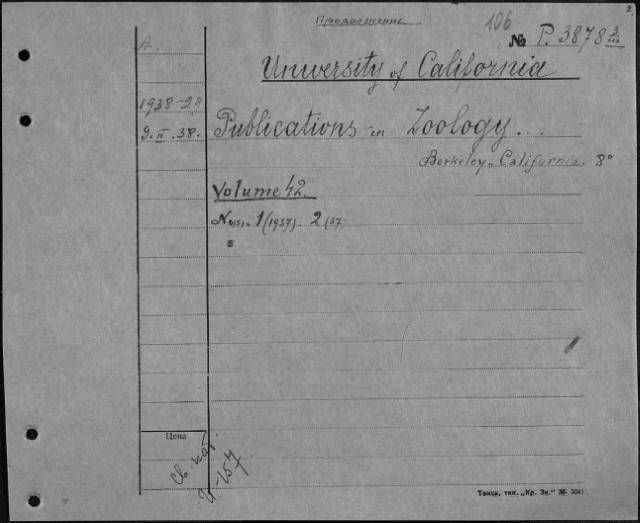 Продолжение.
106
№ P. 3878
University of California
A.
1938-28
9.II.38.
Publications in Zoology...
Berkeley, California. 8°
Volume 42.
Nos. 1 (1937). 2 (37)
Цена
Св. кат.
И-157
Томск, тип. „Кр. Зн."